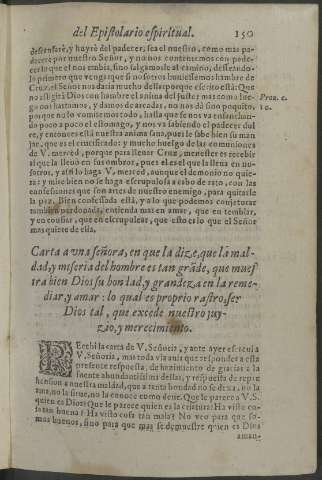 del Epistolario espiritual. 150
descansarè, y huyrè del padecer; sea el nuestro, como mas pa-
decerè por nuestro Señor, y no nos contentemos con pade-
cerlo que el nos embia, sino salgamosle al camino, desseando-
lo primero que venga: que si nosotros huuiessemos hambre de
Cruz, el Señor nos daria mucho della: porque escrito està: Que
no afligirà Dios con hambre el anima del justo: mas como lue-
go nos hartamos, y damos de arcadas, no nos dà sino poquito, Prou. c.
porque no lo vomitemos todo, hasta que se nos va ensanchan- 10.
do poco a poco el estomago, y nos va sabiendo el padecer dul-
ce, y entonces està nuestra anima sana, pues le sabe bien su man
jar, que es el crucificado: y mucho huelgo de las comuniones
de V. merced, porque para lleuar Cruz, menester es recebir
al que la lleuò en sus ombros, pues el es el que la lleua en no-
sotros, y assi lo haga V. merced, aunque el demonio no quie-
ra: y mire bien no se haga escrupulosa a cabo de rato, con las
confessiones que son artes de nuestro enemigo, para quitarle
la paz. Bien confessada està, y a lo que podemos conjeturar
tambien perdonada, entienda mas en amar, que en temblar,
y en confiar, que en escrupulear, que esto es lo que el Señor
mas quiere della,
Carta a vna señora, en que la dize, que la mal-
dad, y miseria del hombre es tan grãde, que mues
tra bien Dios su bondad, y grandeza en la reme-
diar, y amar: lo qual es proprio rastro, ser
Dios tal, que excede nuestro juy-
zio, y merecimiento.
REcebi la carta de V. Señoria, y ante ayer escreui a
V. Señoria, mas toda via aurà que responder a esta
presente respuesta, de hazimiento de gracias a la
fuente abundantissima dellas, y respuesta de repre
hension a nuestra maldad, que a tanta bondad no se dexa, no la
ama, no la sirue, no la conoce como deue. Que le parece a V. S.
quien es Dios? Que le parece quien es la criatura? Ha visto co-
sa tan buena? Ha visto cosa tan mala? No veo para que so-
mos buenos, sino para que mas se demuestre quien es Dios
aman-